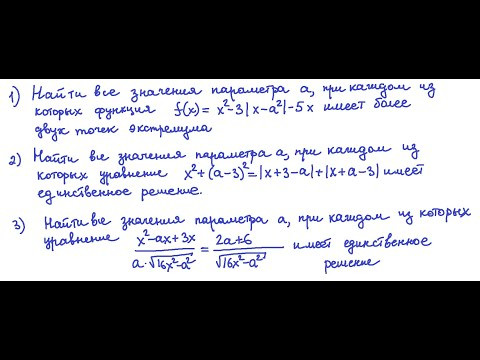 1) Найти все значения параметра a, при каждом из
которых функция f(x) = x²-3|x-a²|-5x имеет более
двух точек экстремума
2) Найти все значения параметра a, при каждом из
которых уравнение x²+(a-3)²=|x+3-a|+|x+a-3| имеет
единственное решение.
3) Найти все значения параметра a, при каждом из которых
уравнение (x²-ax+3x)/(a·√(16x²-a²)) = (2a+6)/√(16x²-a²) имеет единственное
решение